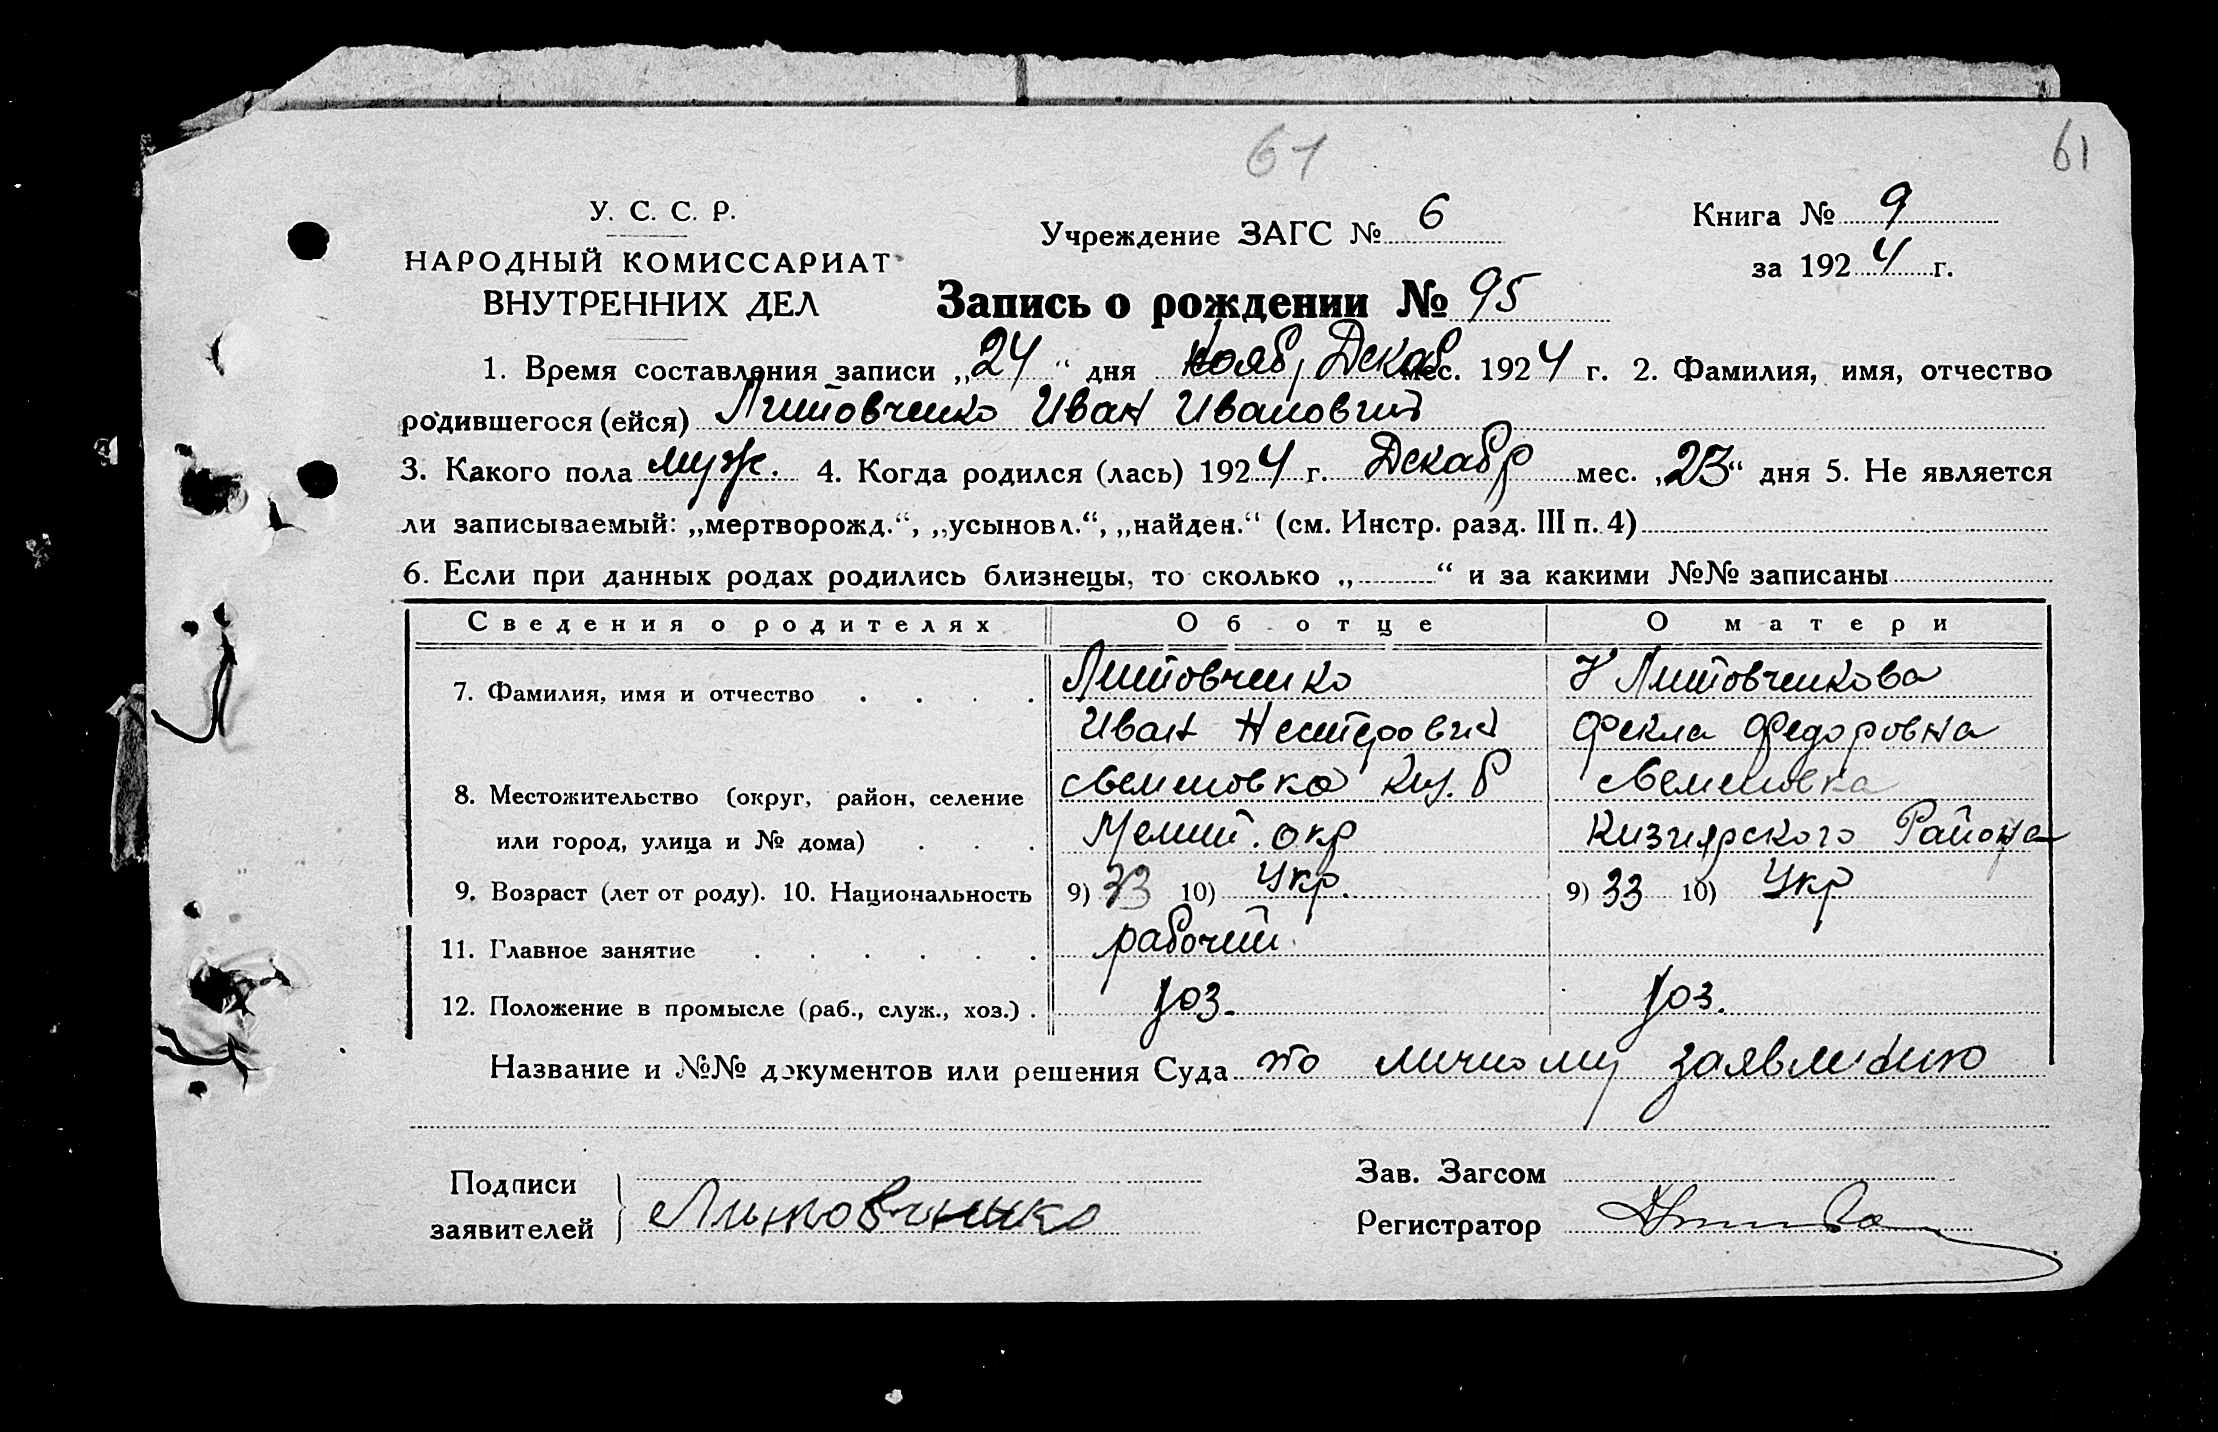 61 61
У. С. С. Р.
НАРОДНЫЙ КОМИССАРИАТ
ВНУТРЕННИХ ДЕЛ
Учреждение ЗАГС № 6
Книга № 9
за 1924 г.
Запись о рождении № 95
1. Время составления записи „24“ дня Нояб, Декаб мес. 1924 г. 2. Фамилия, имя, отчество
родившегося (ейся) Литовченко Иван Иванович
3. Какого пола муж. 4. Когда родился (лась) 1924 г. Декабр мес. „23“ дня 5. Не является
ли записываемый: „мертворожд.“, „усыновл.“, „найден.“ (см. Инстр. разд. III п. 4)
6. Если при данных родах родились близнецы, то сколько „ “ и за какими №№ записаны
Сведения о родителях Об отце О матери
7. Фамилия, имя и отчество Литовченко Литовченкова
Иван Нестерович Фекла Федоровна
8. Местожительство (округ, район, селение Семеновка Киз. р Семеновка
или город, улица и № дома) Мелит. окр Кизиярского Района
9. Возраст (лет от роду). 10. Национальность 9) 33 10) Укр. 9) 33 10) Укр
11. Главное занятие рабочий
12. Положение в промысле (раб., служ., хоз.) хоз. хоз.
Название и №№ документов или решения Суда по личному заявлению
Подписи
заявителей Литовченко
Зав. Загсом
Регистратор